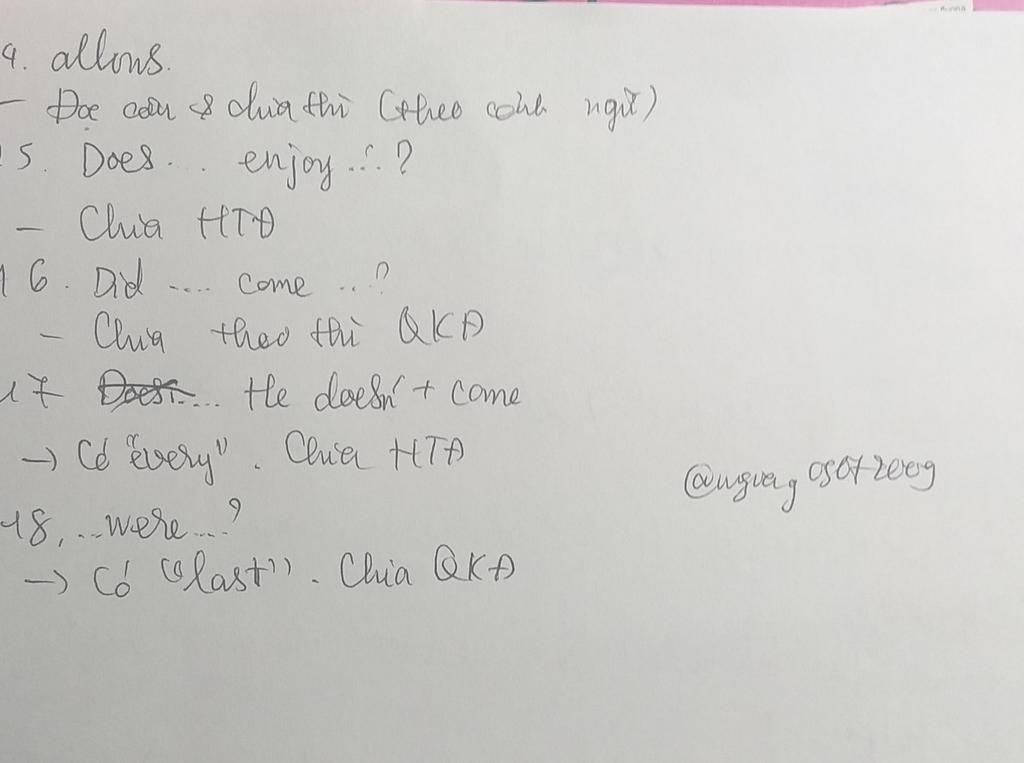 4. allows.
- Đọc câu & chia thì (theo cảnh ngữ)
15. Does.... enjoy...?
- Chia HTĐ
16. Did .... come ...?
- Chia theo thì QKĐ
17 Does..... He doesn't + come
→ Có "every". Chia HTĐ
18, ...were...?
→ Có "last". Chia QKĐ